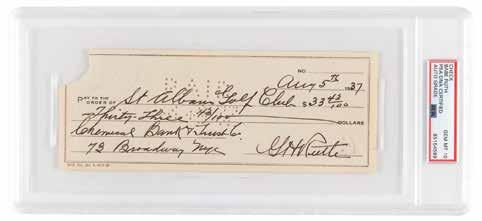 NO.
Aug 5th 1937
PAY TO THE
ORDER OF St Albans Golf Club $33 43/100
Thirty-three 43/100 DOLLARS
Chemical Bank & Trust Co.
73 Broadway NYC
G H Ruth
CHECK
BABE RUTH
PSA/DNA CERTIFIED
AUTO GRADE
GEM MT 10